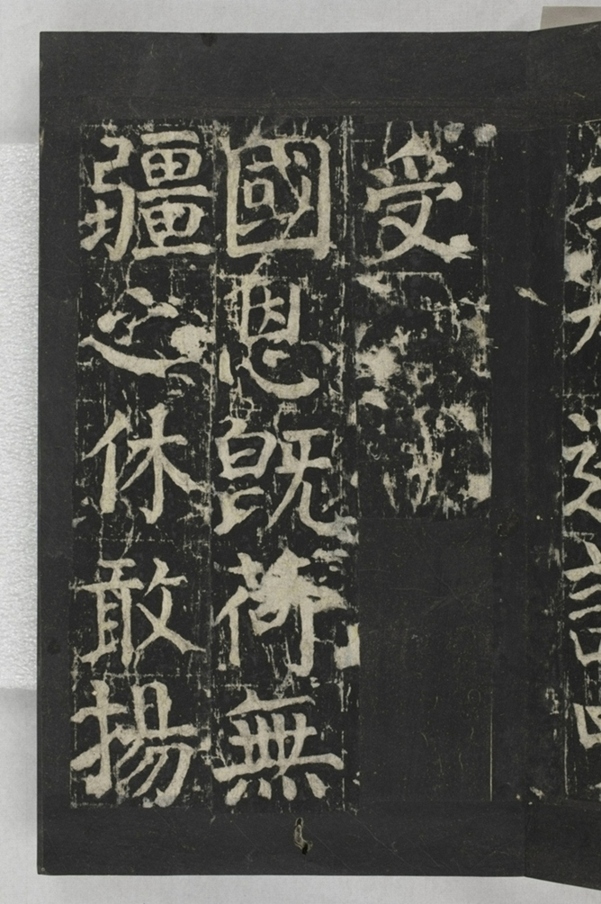 受
國恩既荷無
疆之休敢揚